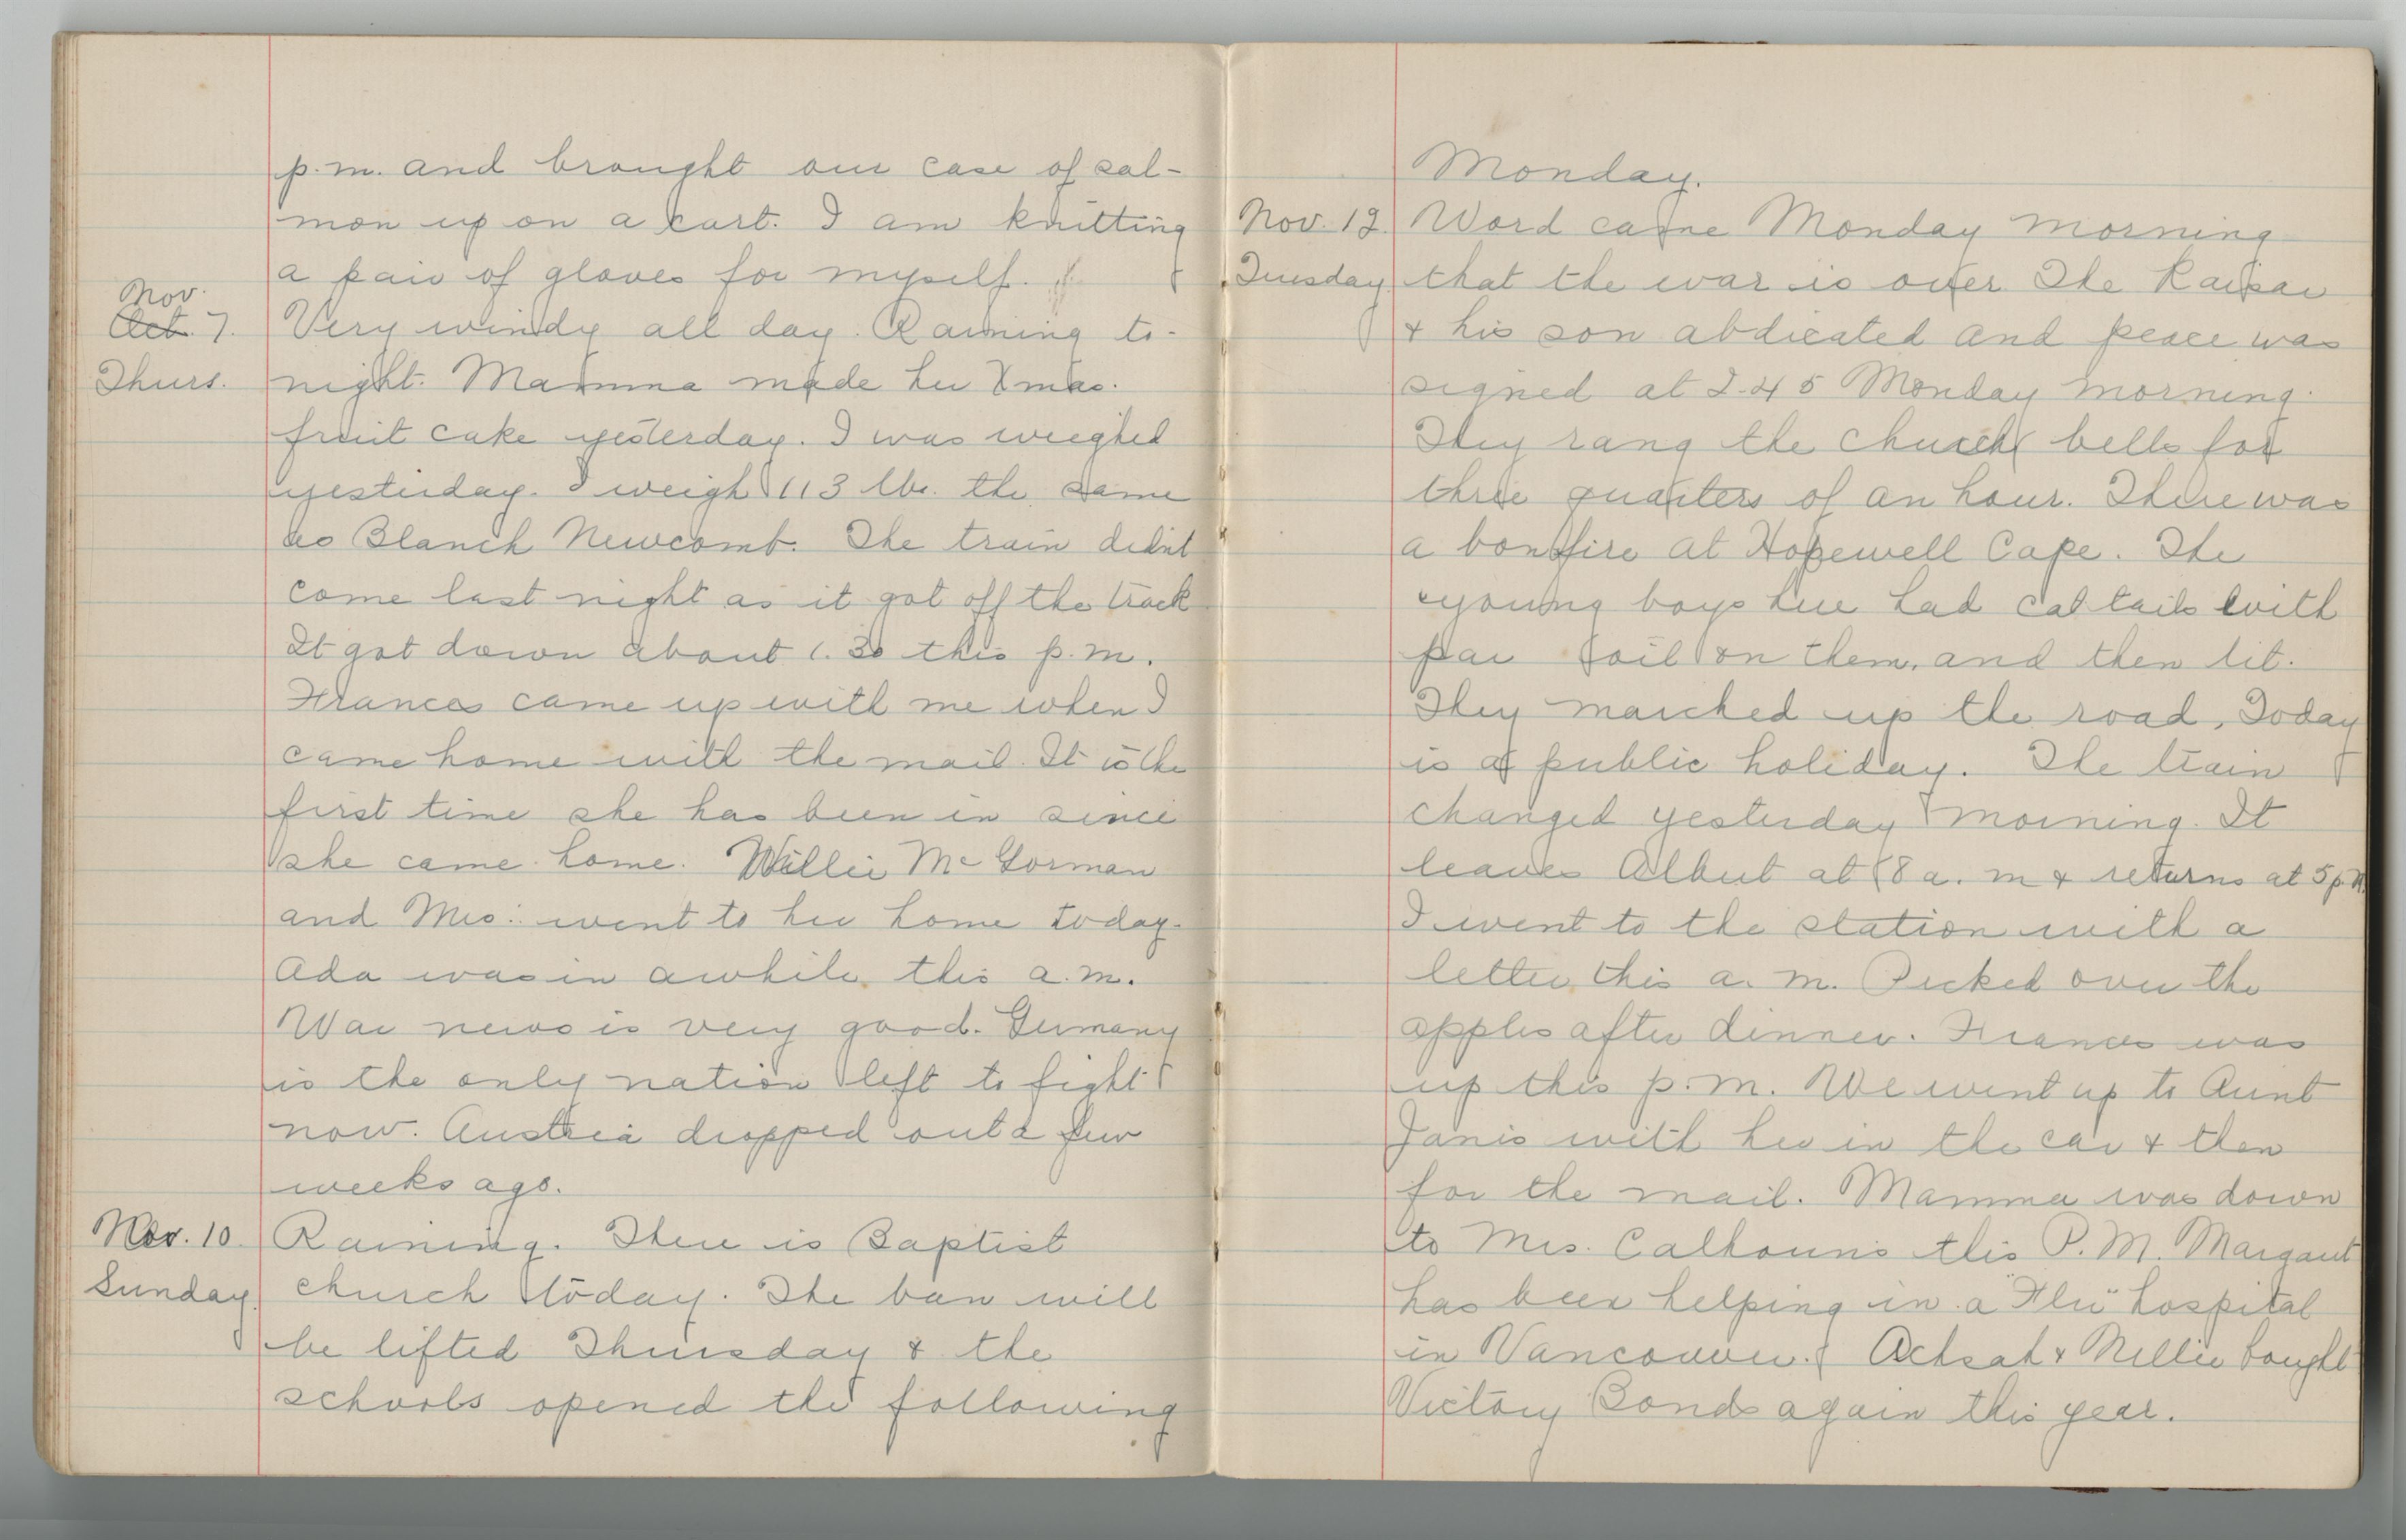 p.m. and brought our case of sal-
mon up on a cart. I am knitting
a pair of gloves for myself.
Nov.
Oct. 7.
Thurs.
Very windy all day. Raining to-
night. Mamma made her Xmas.
fruit cake yesterday. I was weighed
yesterday. I weigh 113 lbs. the same
as Blanch Newcomb. The train didn't
come last night as it got off the track
It got down about 1.30 this p.m.
Frances came up with me when I
came home with the mail. It is the
first time she has been in since
she came home. Willie McGorman
and Mrs. went to her home today.
Ada was in awhile this a.m.
War news is very good. Germany
is the only nation left to fight
now. Austria dropped out a few
weeks ago.
Nov. 10
Sunday.
Raining. There is Baptist
church today. The ban will
be lifted Thursday & the
schools opened the following
Monday.
Nov. 12
Tuesday
Word came Monday morning
that the war is over. The Kaisar
& his son abdicated and peace was
signed at 2.45 Monday morning.
They rang the church bells for
three quarters of an hour. There was
a bonfire at Hopewell Cape. The
young boys here had cat tails with
par oil on them, and then lit.
They marched up the road, Today
is a public holiday. The train
changed yesterday morning. It
leaves Albert at 8 a.m & returns at 5 p.m.
I went to the station with a
letter this a.m. Picked over the
apples after dinner. Frances was
up this p.m. We went up to Aunt
Janis with her in the car & then
for the mail. Mamma was down
to Mrs. Calhoun's this P.M. Margaret
has been helping in a "Flu" hospital
in Vancouver. Achsah & Nellie bought
Victory Bonds again this year.